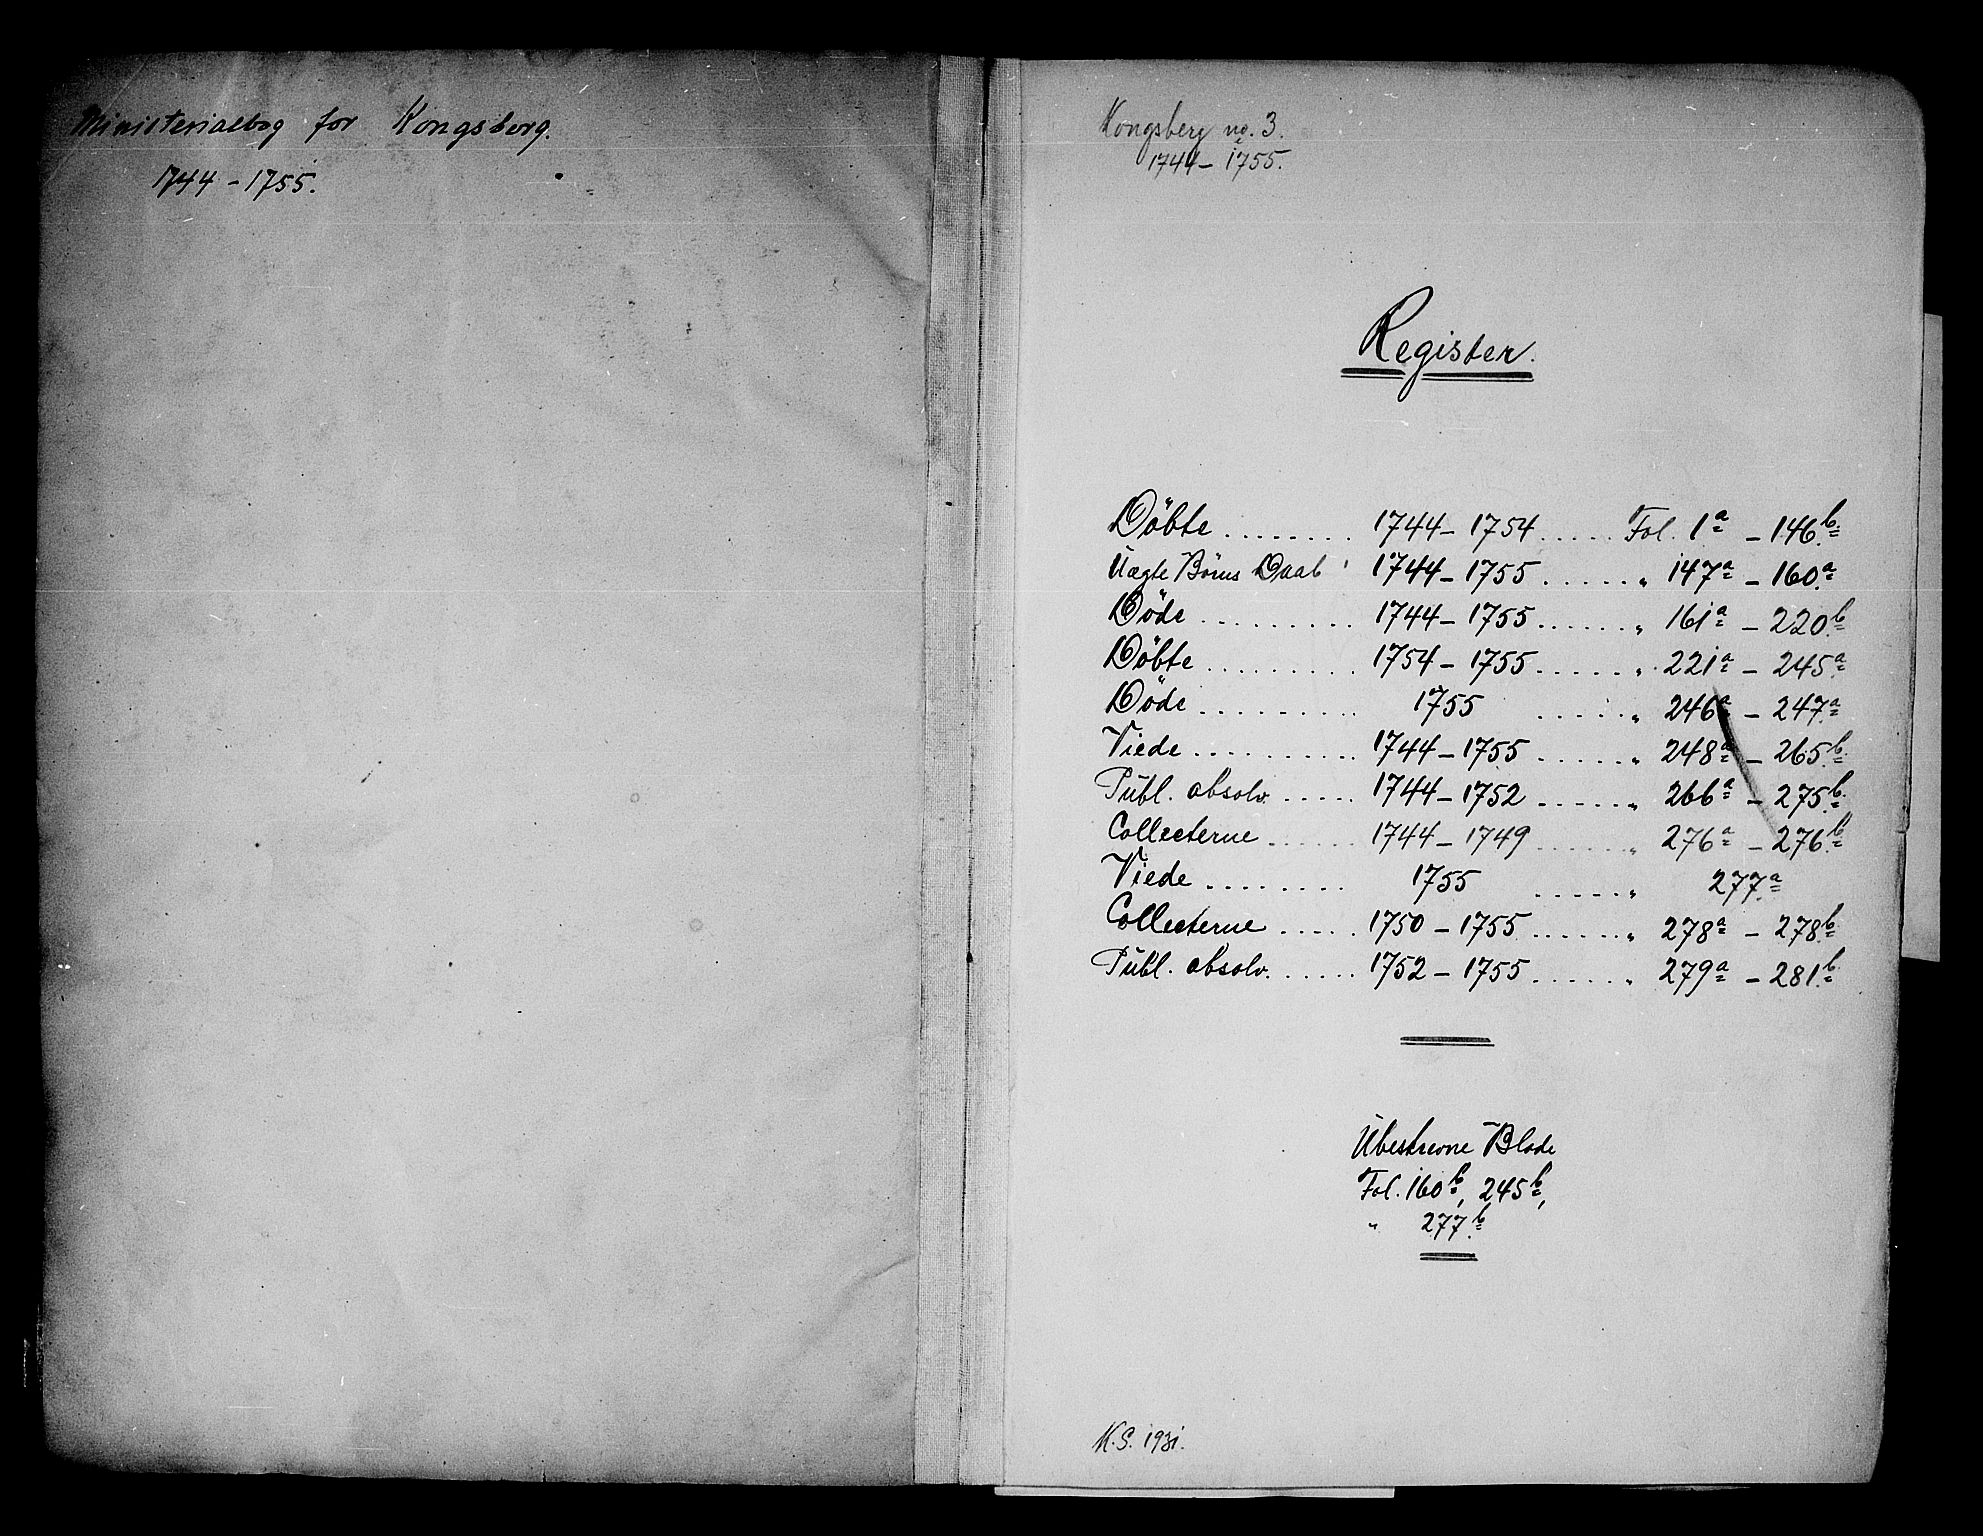 Ministerialbog for Kongsberg.
1744 - 1755.
Kongsberg no. 3.
1744 - 1755.
Register.
Döbte ........ 1744 - 1754 ..... Fol. 1a - 146b.
Uægte Börns Daab 1744 - 1755 ...... " 147a - 160a.
Döde .......... 1744 - 1755 ...... " 161a - 220b.
Döbte .......... 1754 - 1755 ...... " 221a - 245a
Döde .......... 1755 ...... " 246a - 247a
Viede .......... 1744 - 1755 ...... " 248a - 265b.
Publ. absolv. ..... 1744 - 1752 ...... " 266a - 275b.
Collecterne ...... 1744 - 1749 ...... " 276a - 276b
Viede ........ 1755 ...... " 277a
Collecterne ..... 1750 - 1755 ...... " 278a - 278b.
Publ. absolv. ..... 1752 - 1755 ...... " 279a - 281b.
Ubeskrevne Blade
Fol. 160b, 245b,
" 277b.
K.S. 1931.